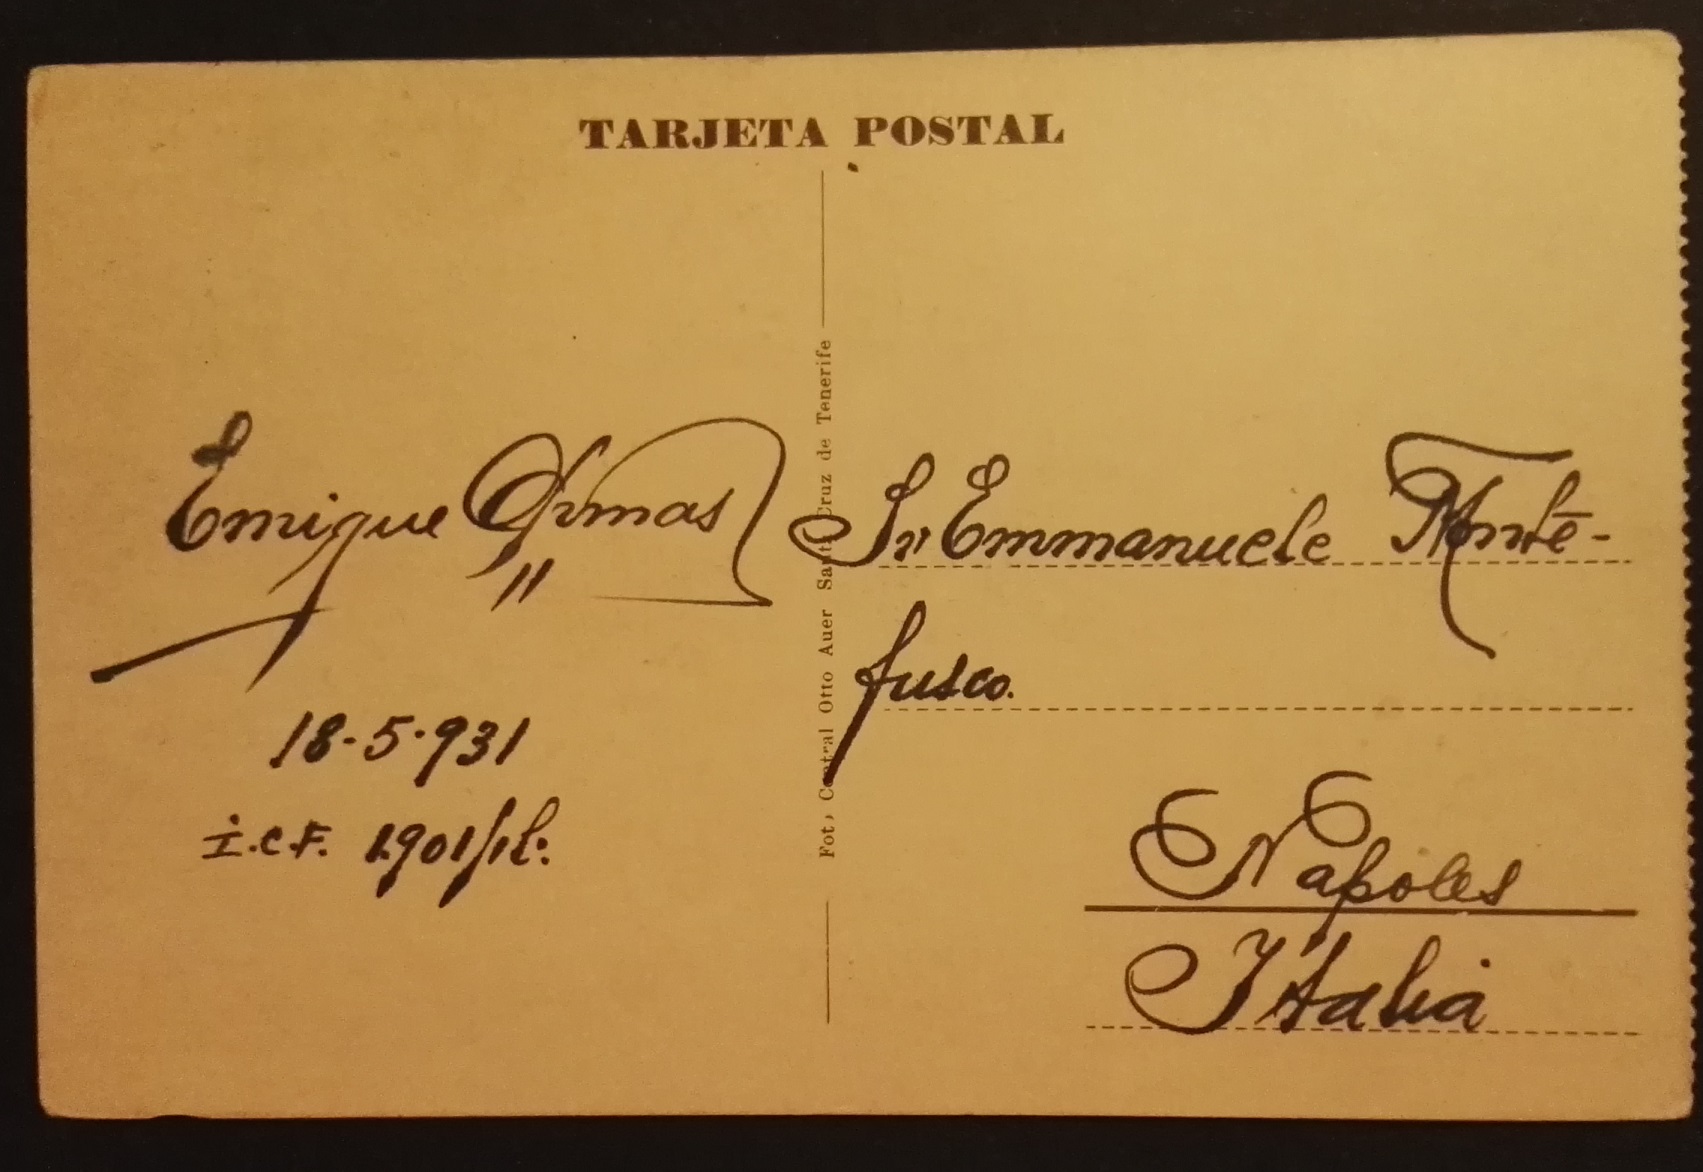 TARJETA POSTAL
Enrique Armas
18-5-931
I.C.F. 1901/
Fot, Central Otto Auer Santa Cruz de Tenerife
Sr Emmanuele Monte-
fusco.
Napoles
Italia